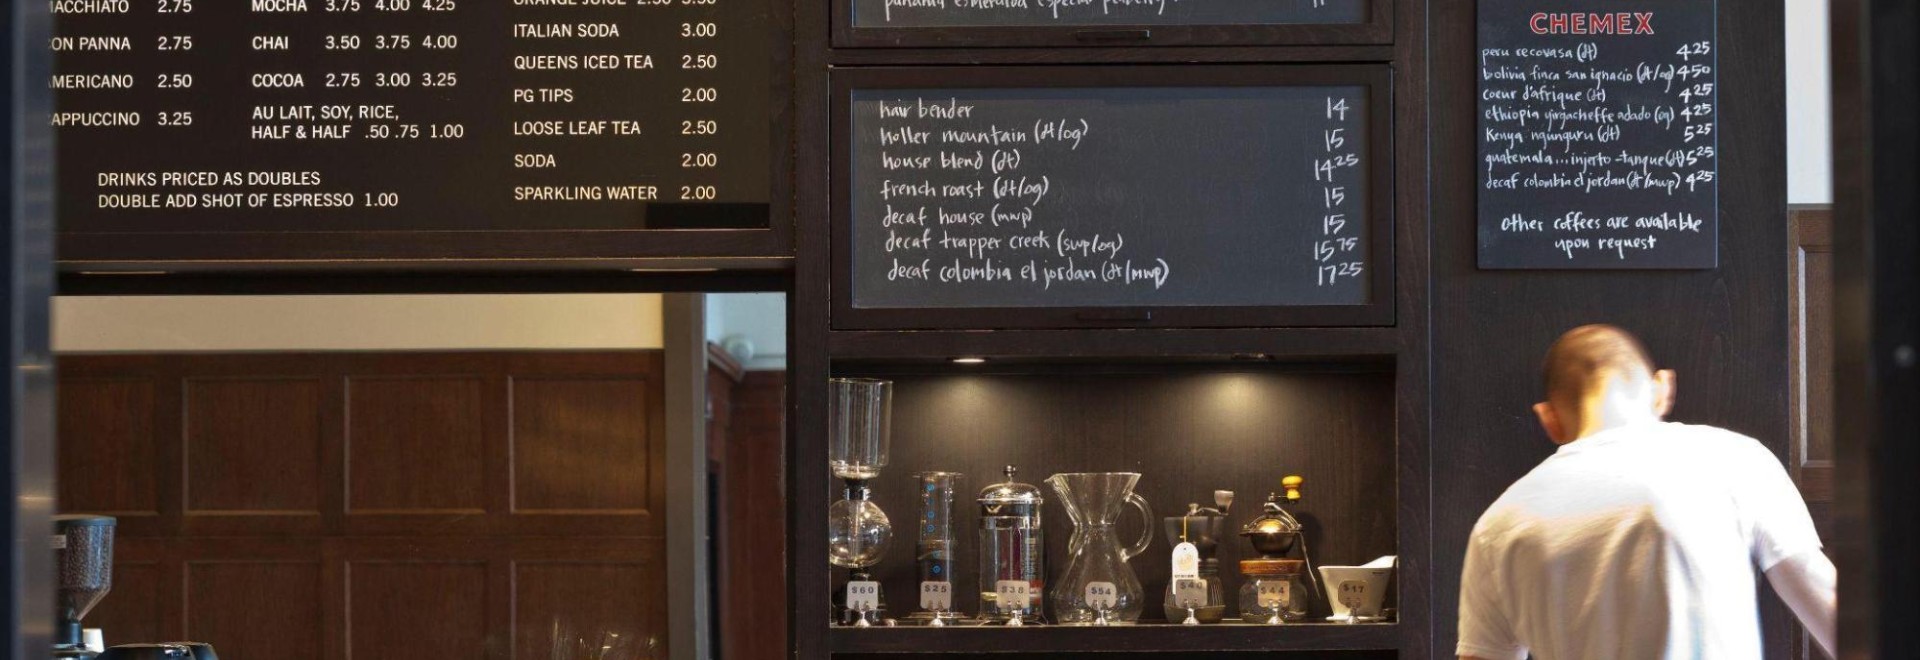 MACCHIATO 2.75
CON PANNA 2.75
AMERICANO 2.50
CAPPUCCINO 3.25
MOCHA 3.75 4.00 4.25
CHAI 3.50 3.75 4.00
COCOA 2.75 3.00 3.25
AU LAIT, SOY, RICE,
HALF & HALF .50 .75 1.00
DRINKS PRICED AS DOUBLES
DOUBLE ADD SHOT OF ESPRESSO 1.00
ORANGE JUICE 2.50 3.50
ITALIAN SODA 3.00
QUEENS ICED TEA 2.50
PG TIPS 2.00
LOOSE LEAF TEA 2.50
SODA 2.00
SPARKLING WATER 2.00
panama esmeralda especial peaberry
hair bender 14
holler mountain (dt/og) 15
house blend (dt) 14 25
french roast (dt/og) 15
decaf house (mwp) 15
decaf trapper creek (swp/og) 15 75
decaf colombia el jordan (dt/mwp) 17 25
CHEMEX
peru recovasa (dt) 4 25
bolivia finca san ignacio (dt/og) 4 50
coeur d'afrique (dt) 4 25
ethiopia yirgacheffe adado (og) 4 25
Kenya ngunguru (dt) 5 25
guatemala... injerto-tanque (dt) 5 25
decaf colombia el jordan (dt/mwp) 4 25
other coffees are available
upon request
$60
$25
$38
$54
$44
$17